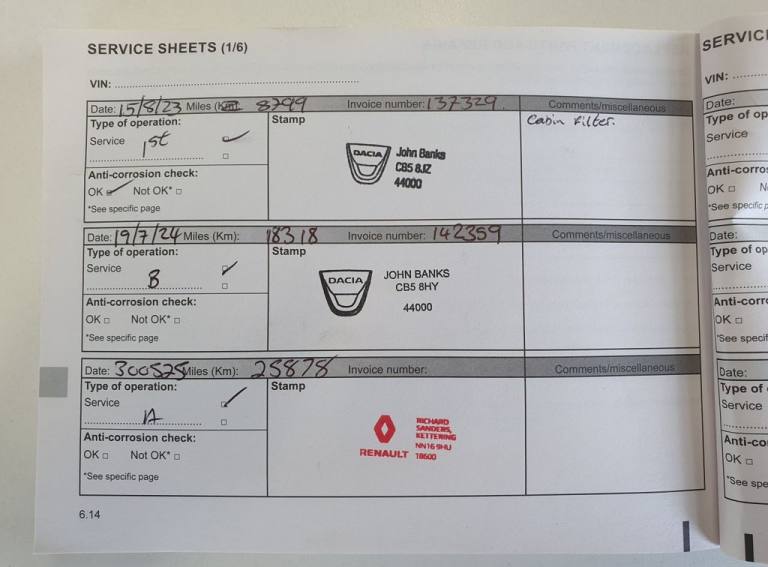 SERVICE SHEETS (1/6)
VIN:
Date: 15/8/23 Miles (Km): 8799 Invoice number: 137329 Comments/miscellaneous
Type of operation: Stamp Cabin Filter.
Service 1st
DACIA John Banks
CB5 8JZ
44000
Anti-corrosion check:
OK Not OK*
*See specific page
Date: 19/7/24 Miles (Km): 18318 Invoice number: 142359 Comments/miscellaneous
Type of operation: Stamp
Service
B
DACIA JOHN BANKS
CB5 8HY
44000
Anti-corrosion check:
OK Not OK*
*See specific page
Date: 300525 Miles (Km): 25878 Invoice number: Comments/miscellaneous
Type of operation: Stamp
Service
A
RENAULT RICHARD
SANDERS,
KETTERING
NN16 9HU
18600
Anti-corrosion check:
OK Not OK*
*See specific page
6.14
SERVIC
VIN:
Date:
Type of op
Service
Anti-corros
OK
*See specific p
Date:
Type of op
Service
Anti-corro
OK
*See specif
Date:
Type of
Service
Anti-co
OK
*See spe